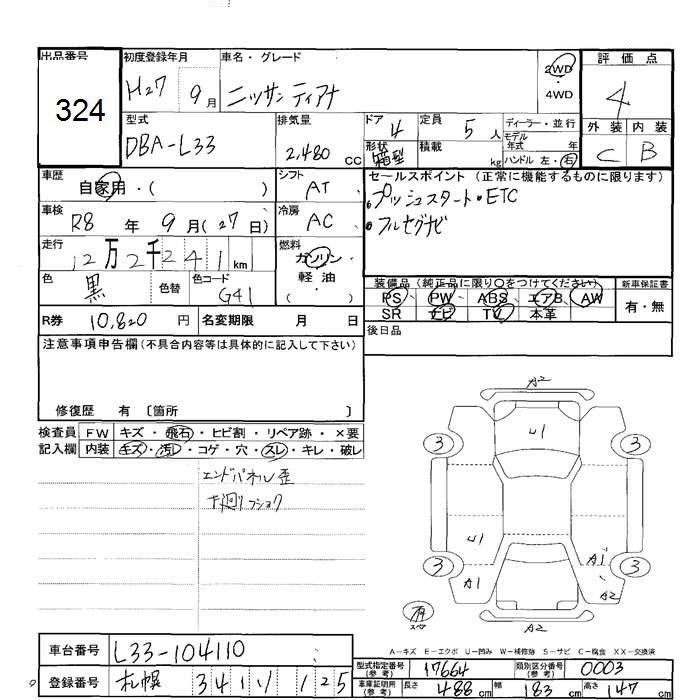 出品番号 初度登録年月 車名・グレード 評価点
324
H27 9月 ニッサン ティアナ 2WD ・ 4WD 4
型式 排気量 ドア 定員 ディーラー・並行 外装 内装
DBA-L33 2,480 cc 4 5人 モデル年式 年 C B
形状 箱型 積載 kg ハンドル 左・右
車歴 シフト セールスポイント (正常に機能するものに限ります)
自家用・( ) AT ・プッシュスタート・ETC
車検 冷房 ・フルセグナビ
R8年 9月(27日) AC
走行 燃料
12万2千241km ガソリン・軽油・( )
色 黒 色替 色コード G41
装備品(純正品に限り○をつけてください) 新車保証書
PS PW ABS エアB AW 有・無
SR ナビ TV 本革
R券 10,820円 名変期限 月 日 後日品
注意事項申告欄(不具合内容等は具体的に記入して下さい)
修復歴 有 〔箇所 〕
検査員 FW キズ・飛石・ヒビ割・リペア跡・×要
記入欄 内装 キズ・汚レ・コゲ・穴・スレ・キレ・破レ
エンドパネル歪
下廻りフショク
A2
U1
3 3
U1 A1
3 3
A1 A2
有 スペア
A2
A-キズ E-エクボ U-凹み W-補修跡 S-サビ C-腐食 XX-交換済
車台番号 L33-104110
登録番号 札幌
型式指定番号(参考) 17664 類別区分番号(参考) 0003
車庫証明用(参考) 長さ 488cm 幅 183cm 高さ 147cm